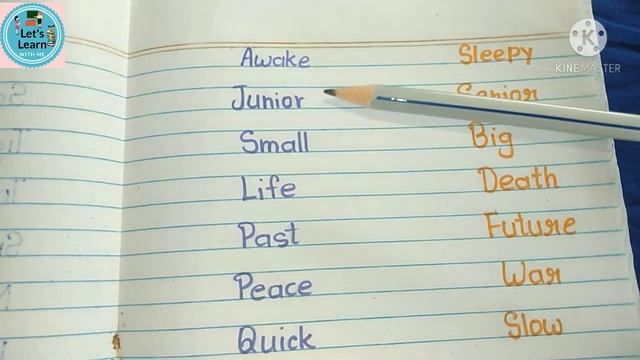 Let's
Learn
WITH ME
KINEMASTER
Awake Sleepy
Junior Senior
Small Big
Life Death
Past Future
Peace War
Quick Slow